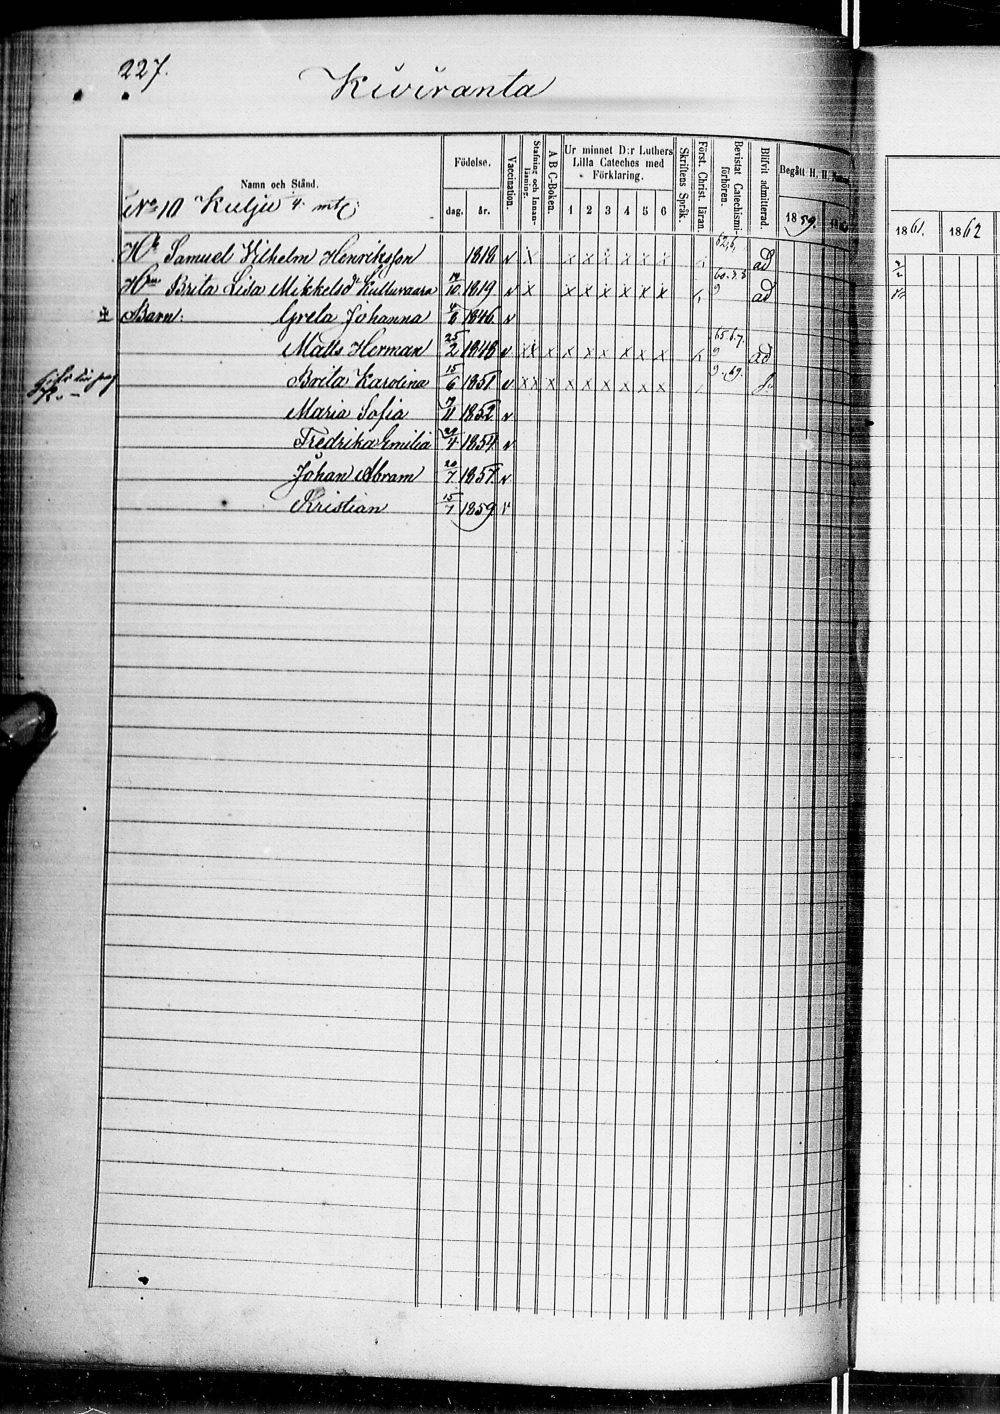 227.
Kiviranta
Namn och Stånd.
Födelse.
dag. år.
Vaccination.
Stafning och Innan-läsning.
A B C-Boken.
Ur minnet D:r Luthers Lilla Cateches med Förklaring.
1 2 3 4 5 6
Skriftens Språk.
Först. Christ. läran.
Bevistat Catechismi-förhören.
Blifvit admitterad.
Begått H. H.
1859.
1861. 1862
No 10 Kulju 4. mtl;
Samuel Vilhelm Henriksson 1818 v x x x x x x x ad
Brita Lisa Mikkelsdr Kultuvaara 10 1819 v x x x x x x x ad
Barn: Greta Johanna 4/6 1846 v
Matts Herman 25/2 1848 v x x x x x x x x x 65.6.7. 9 ad
Brita Karolina 15/6 1851 v x x x x x x x x x
Maria Sofia 11 1852 v
Fredrika Emilia 4 1854 v
Johan Abram 20/7 1857 v
Kristian 15/7 1859 v